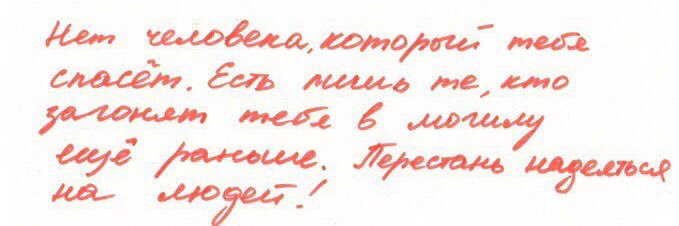 Нет человека, который тебя
спасёт. Есть лишь те, кто
загонят тебя в могилу
ещё раньше. Перестань надеяться
на людей!